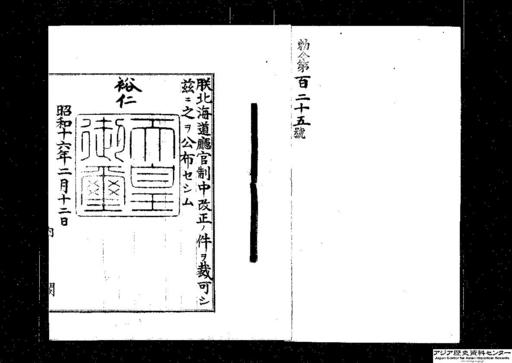 勅令第百二十五號
朕北海道廳官制中改正ノ件ヲ裁可シ
茲ニ之ヲ公布セシム
裕仁
天皇
御璽
昭和十六年二月十二日
内閣
アジア歴史資料センター
Japan Center for Asian Historical Records